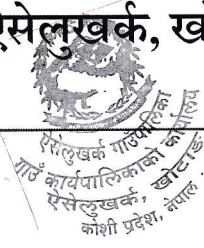 ऐसेलुखर्क, खो
ऐसेलुखर्क गाउँपालिका
गाउँ कार्यपालिकाको कार्यालय
ऐसेलुखर्क, खोटाङ
कोशी प्रदेश, नेपाल